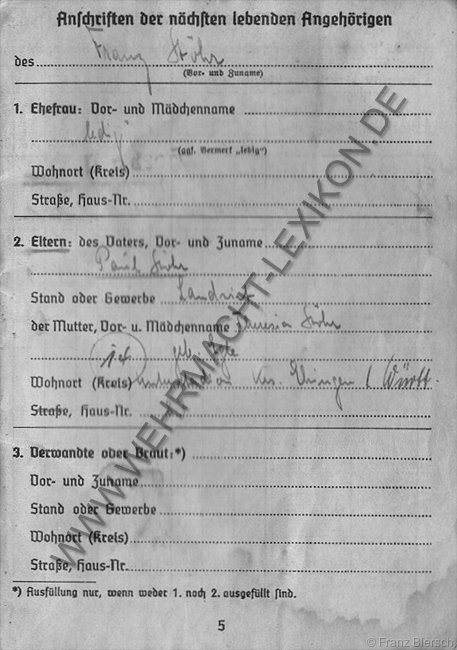 Anschriften der nächsten lebenden Angehörigen
Franz Stöhr
des
(Vor- und Zuname)
1. Ehefrau: Vor- und Mädchenname
ledig
(ggf. Vermerk „ledig")
Wohnort (Kreis)
Straße, Haus-Nr.
2. Eltern: des Vaters, Vor- und Zuname
Paul Stöhr
Stand oder Gewerbe
der Mutter, Vor- u. Mädchenname Theresia Stöhr
geb.
Wohnort (Kreis) Krs. Ehingen / Württ.
Straße, Haus-Nr.
3. Verwandte oder Braut:*)
Vor- und Zuname
Stand oder Gewerbe
Wohnort (Kreis)
Straße, Haus-Nr.
*) Ausfüllung nur, wenn weder 1. noch 2. ausgefüllt sind.
5
WWW.WEHRMACHT-LEXIKON.DE
© Franz Biersch